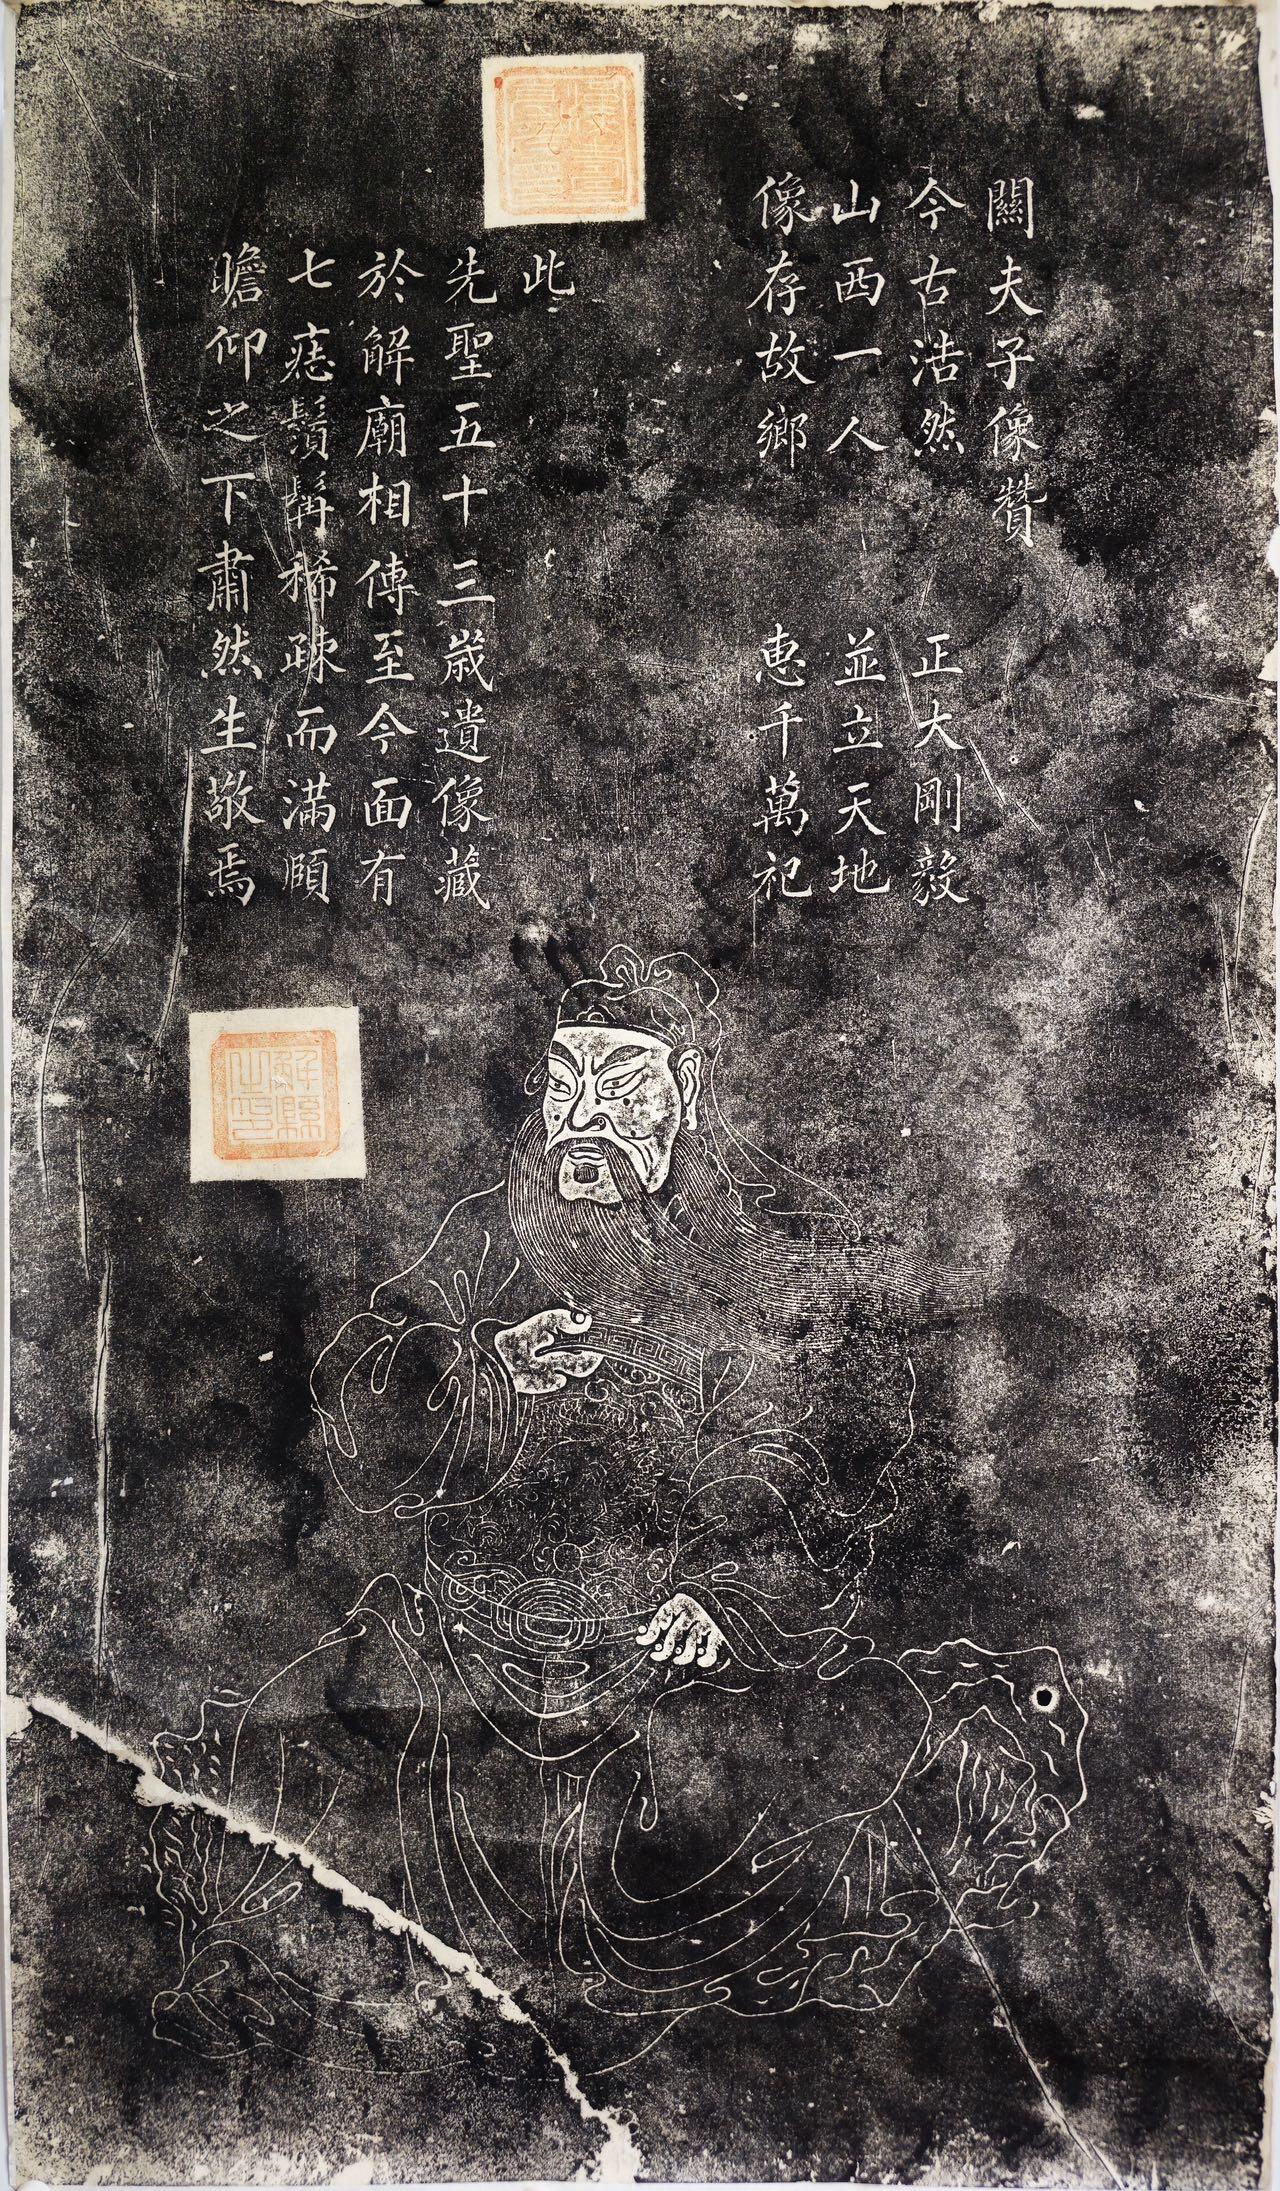 關夫子像贊
今古浩然 正大剛毅
山西一人 並立天地
像存故鄉 惠千萬祀
此
先聖五十三歲遺像藏
於解廟相傳至今面有
七痣鬚髯稀疎而滿頤
瞻仰之下肅然生敬焉
解縣之印